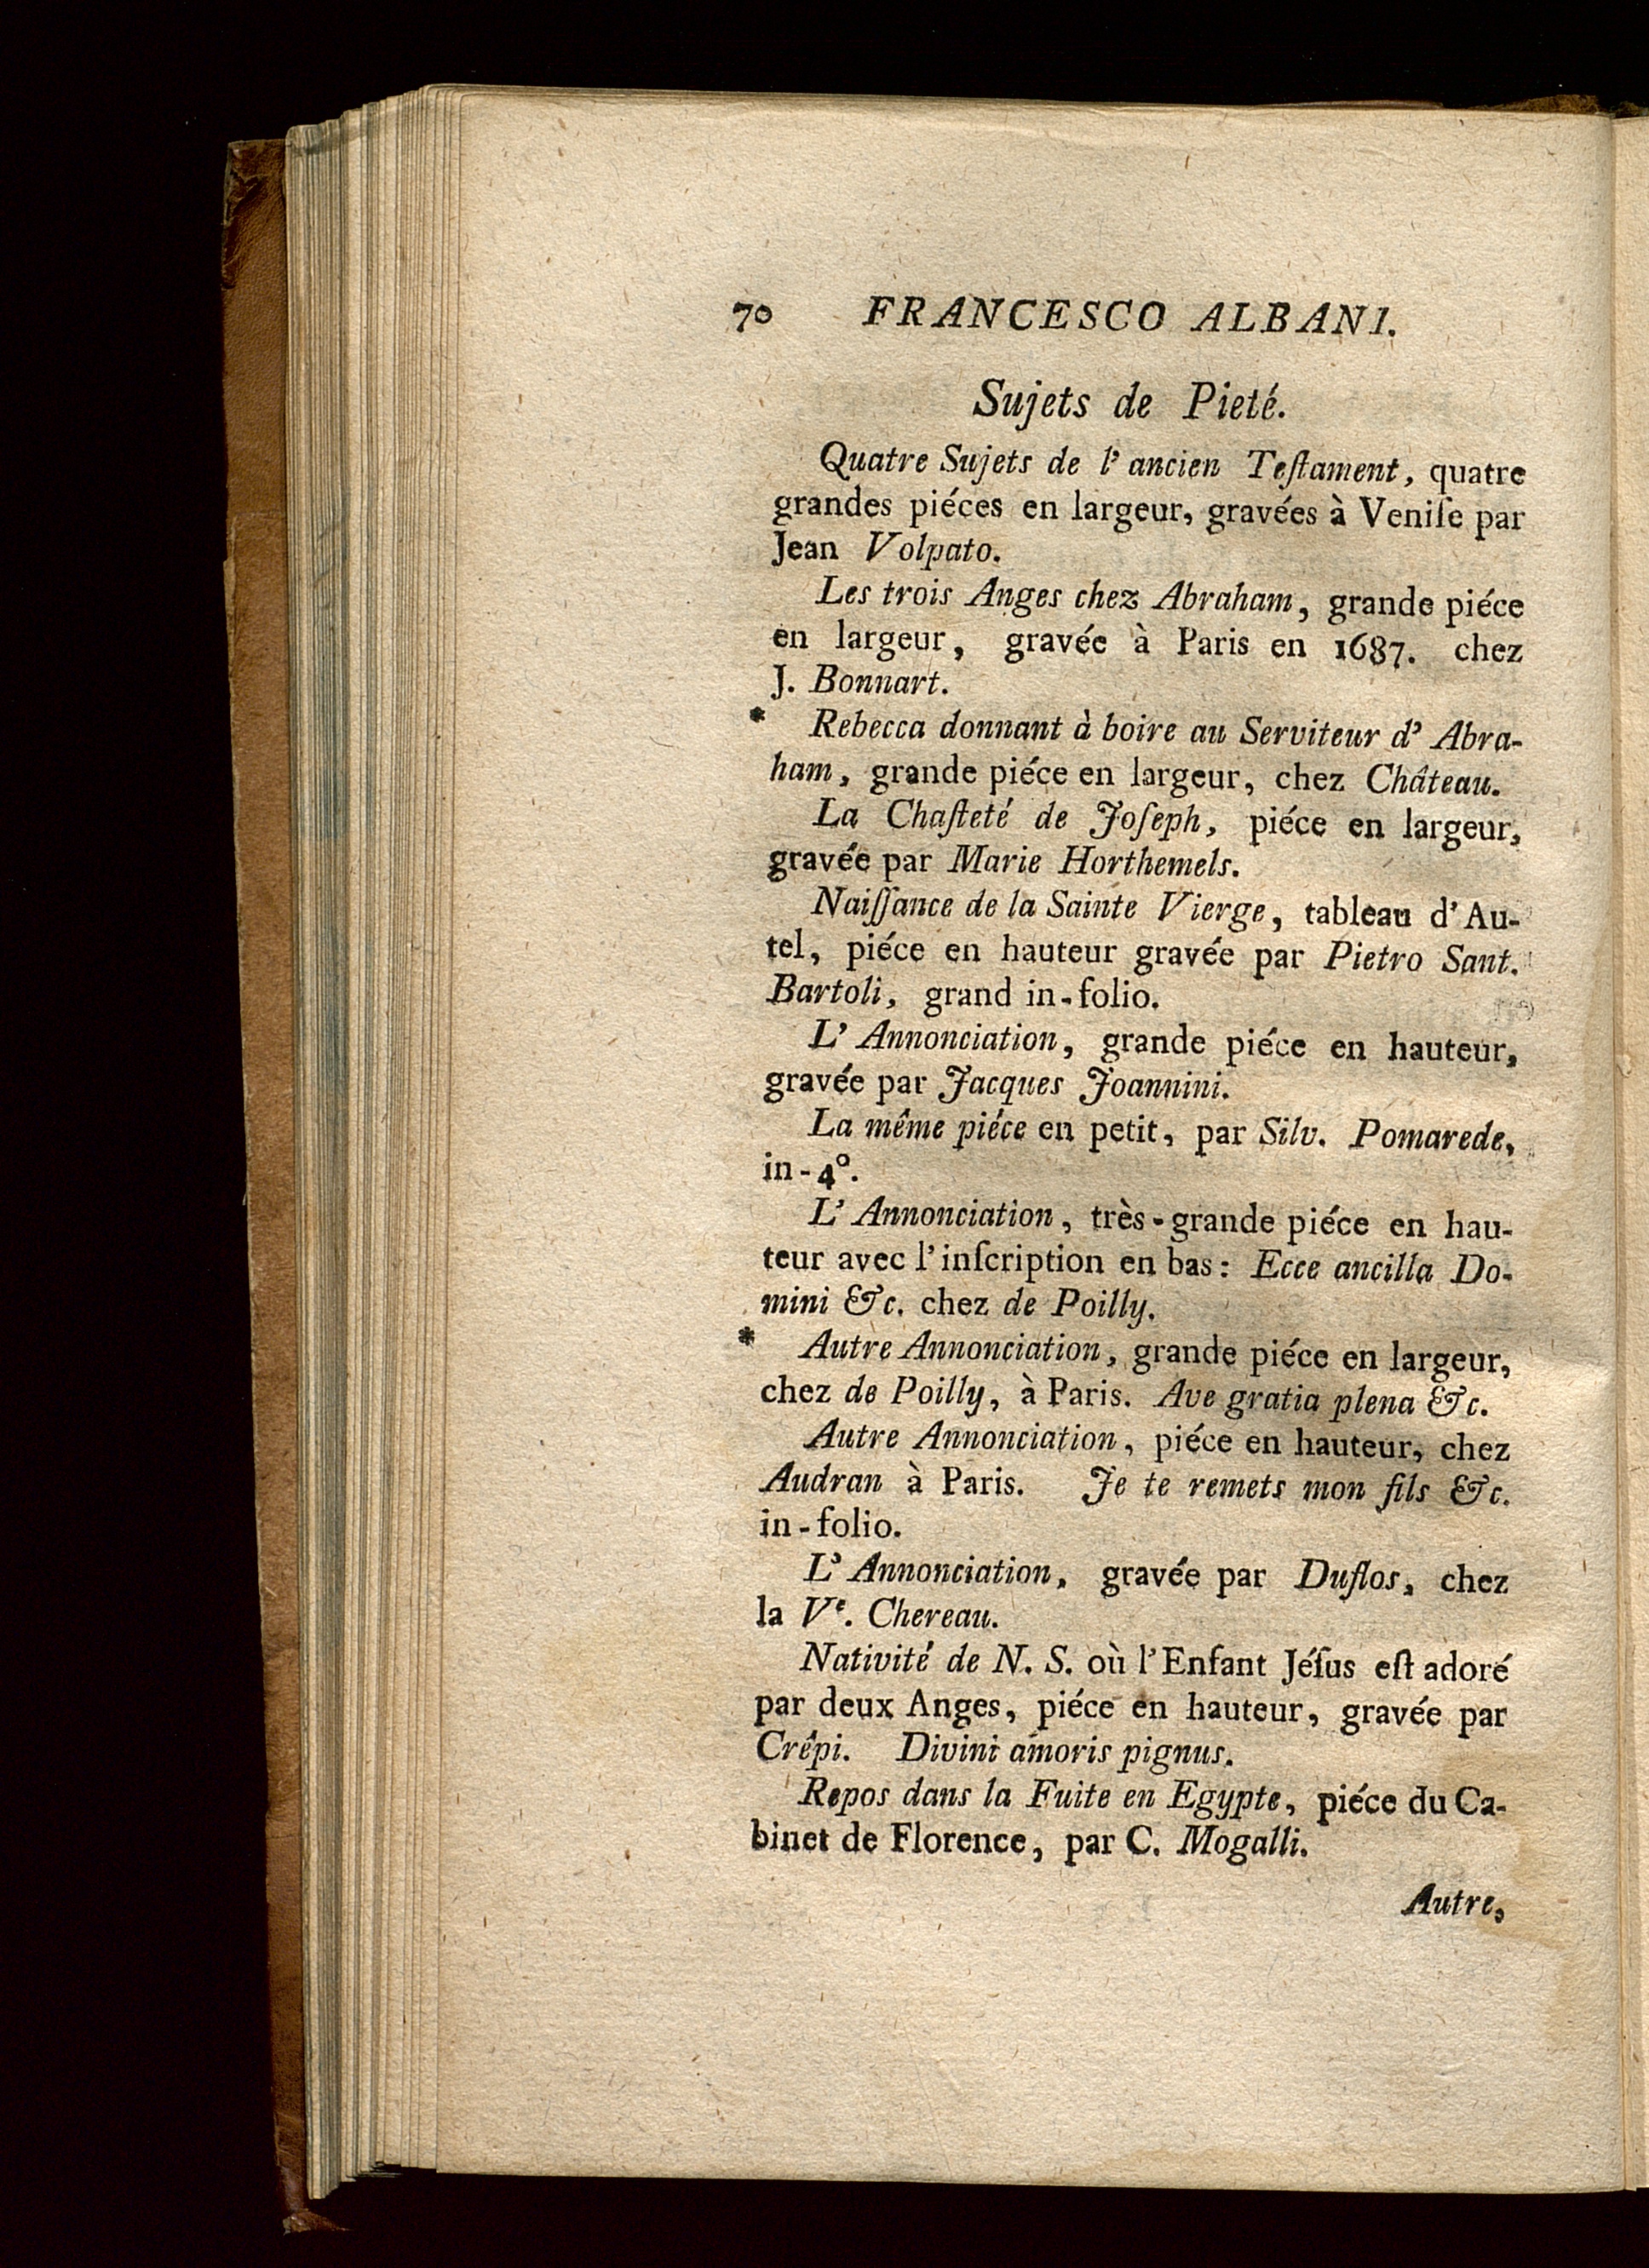 70 FRANCESCO ALBANI.
Sujets de Pieté.
Quatre Sujets de l' ancien Teſtament, quatre
grandes piéces en largeur, gravées à Veniſe par
Jean Volpato.
Les trois Anges chez Abraham, grande piéce
en largeur, gravée à Paris en 1687. chez
J. Bonnart.
* Rebecca donnant à boire au Serviteur d' Abra-
ham, grande piéce en largeur, chez Château.
La Chaſteté de Joſeph, piéce en largeur,
gravée par Marie Horthemels.
Naiſſance de la Sainte Vierge, tableau d' Au-
tel, piéce en hauteur gravée par Pietro Sant.
Bartoli, grand in-folio.
L' Annonciation, grande piéce en hauteur,
gravée par Jacques Joannini.
La même piéce en petit, par Silv. Pomarede,
in-4°.
L' Annonciation, très-grande piéce en hau-
teur avec l'inſcription en bas: Ecce ancilla Do-
mini &c. chez de Poilly.
* Autre Annonciation, grande piéce en largeur,
chez de Poilly, à Paris. Ave gratia plena &c.
Autre Annonciation, piéce en hauteur, chez
Audran à Paris. Je te remets mon fils &c.
in-folio.
L' Annonciation, gravée par Duflos, chez
la Vᵉ. Chereau.
Nativité de N. S. où l'Enfant Jéſus eſt adoré
par deux Anges, piéce en hauteur, gravée par
Crêpi. Divini amoris pignus.
Repos dans la Fuite en Egypte, piéce du Ca-
binet de Florence, par C. Mogalli.
Autre,